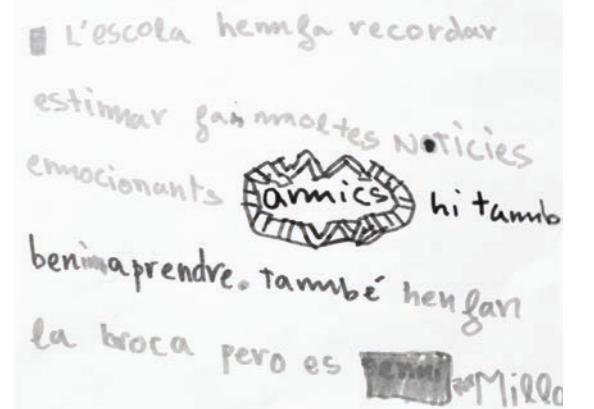 L'escola hem fa recordar
estimar fan moltes Noticies
emocionants amics hi tamb
benim aprendre. També hen fan
la broca pero es Millo